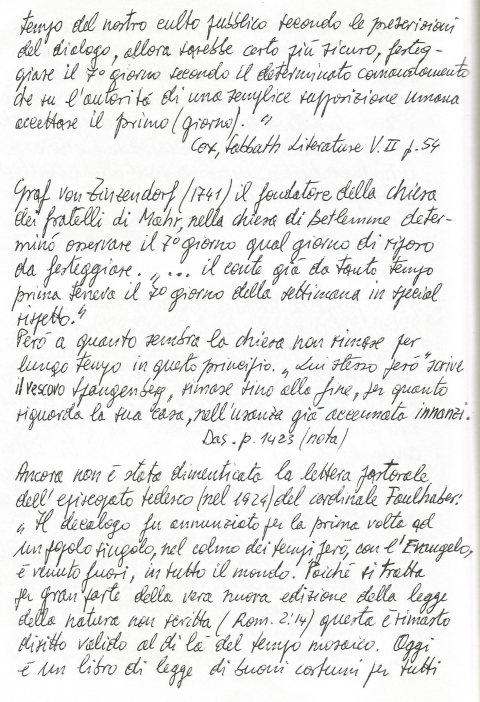 tempo del nostro culto pubblico secondo le prescrizioni
del dialogo, allora sarebbe certo più sicuro, festeg-
giare il 7º giorno secondo il determinato comandamento
che su l'autoritá di una semplice supposizione umana
accettare il primo (giorno). "
Cox, Sabbath Literature V. II p. 54
Graf von Zinzendorf (1741) il fondatore della chiesa
dei fratelli di Mähr, nella chiesa di Betlemme deter-
minó osservare il 7º giorno qual giorno di riposo
da festeggiare. „... il conte giá da tanto tempo
prima teneva il 7º giorno della settimana in special
rispetto."
Peró a quanto sembra la chiesa non rimase per
lungo tempo in questo principio. „Lui stesso peró" scrive
il vescovo Spangenberg „rimase sino alla fine, per quanto
riguarda la sua casa, nell'usanza giá accennata innanzi.
Das. p. 1423 (nota)
Ancora non é stata dimenticata la lettera pastorale
dell'episcopato tedesco (nel 1924) del cardinale Faulhaber:
„Il decalogo fu annunziato per la prima volta ad
un popolo singolo, nel colmo dei tempi peró, con l'Evangelo,
é venuto fuori, in tutto il mondo. Poiché si tratta
per gran parte della vera nuova edizione della legge
della natura non scritta (Rom. 2:14) questa é rimasto
diritto valido al di lá del tempo mosaico. Oggi
é un libro di legge di buoni costumi per tutti